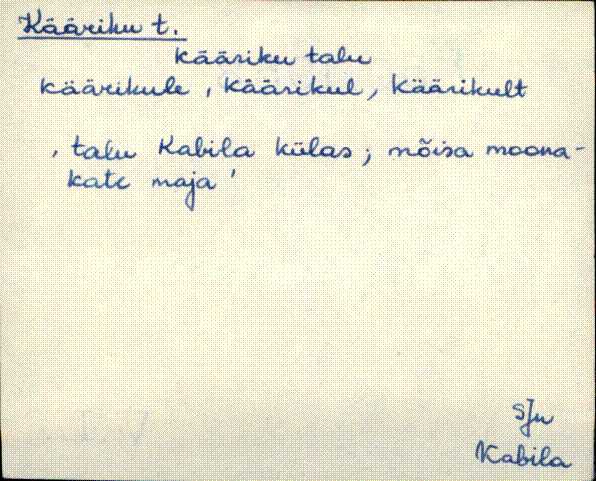 Kääriku t.
kääriku talu
käärikule, käärikul, käärikult
, talu Kabila külas; mõisa moona-
kate maja '
SJn
Kabila